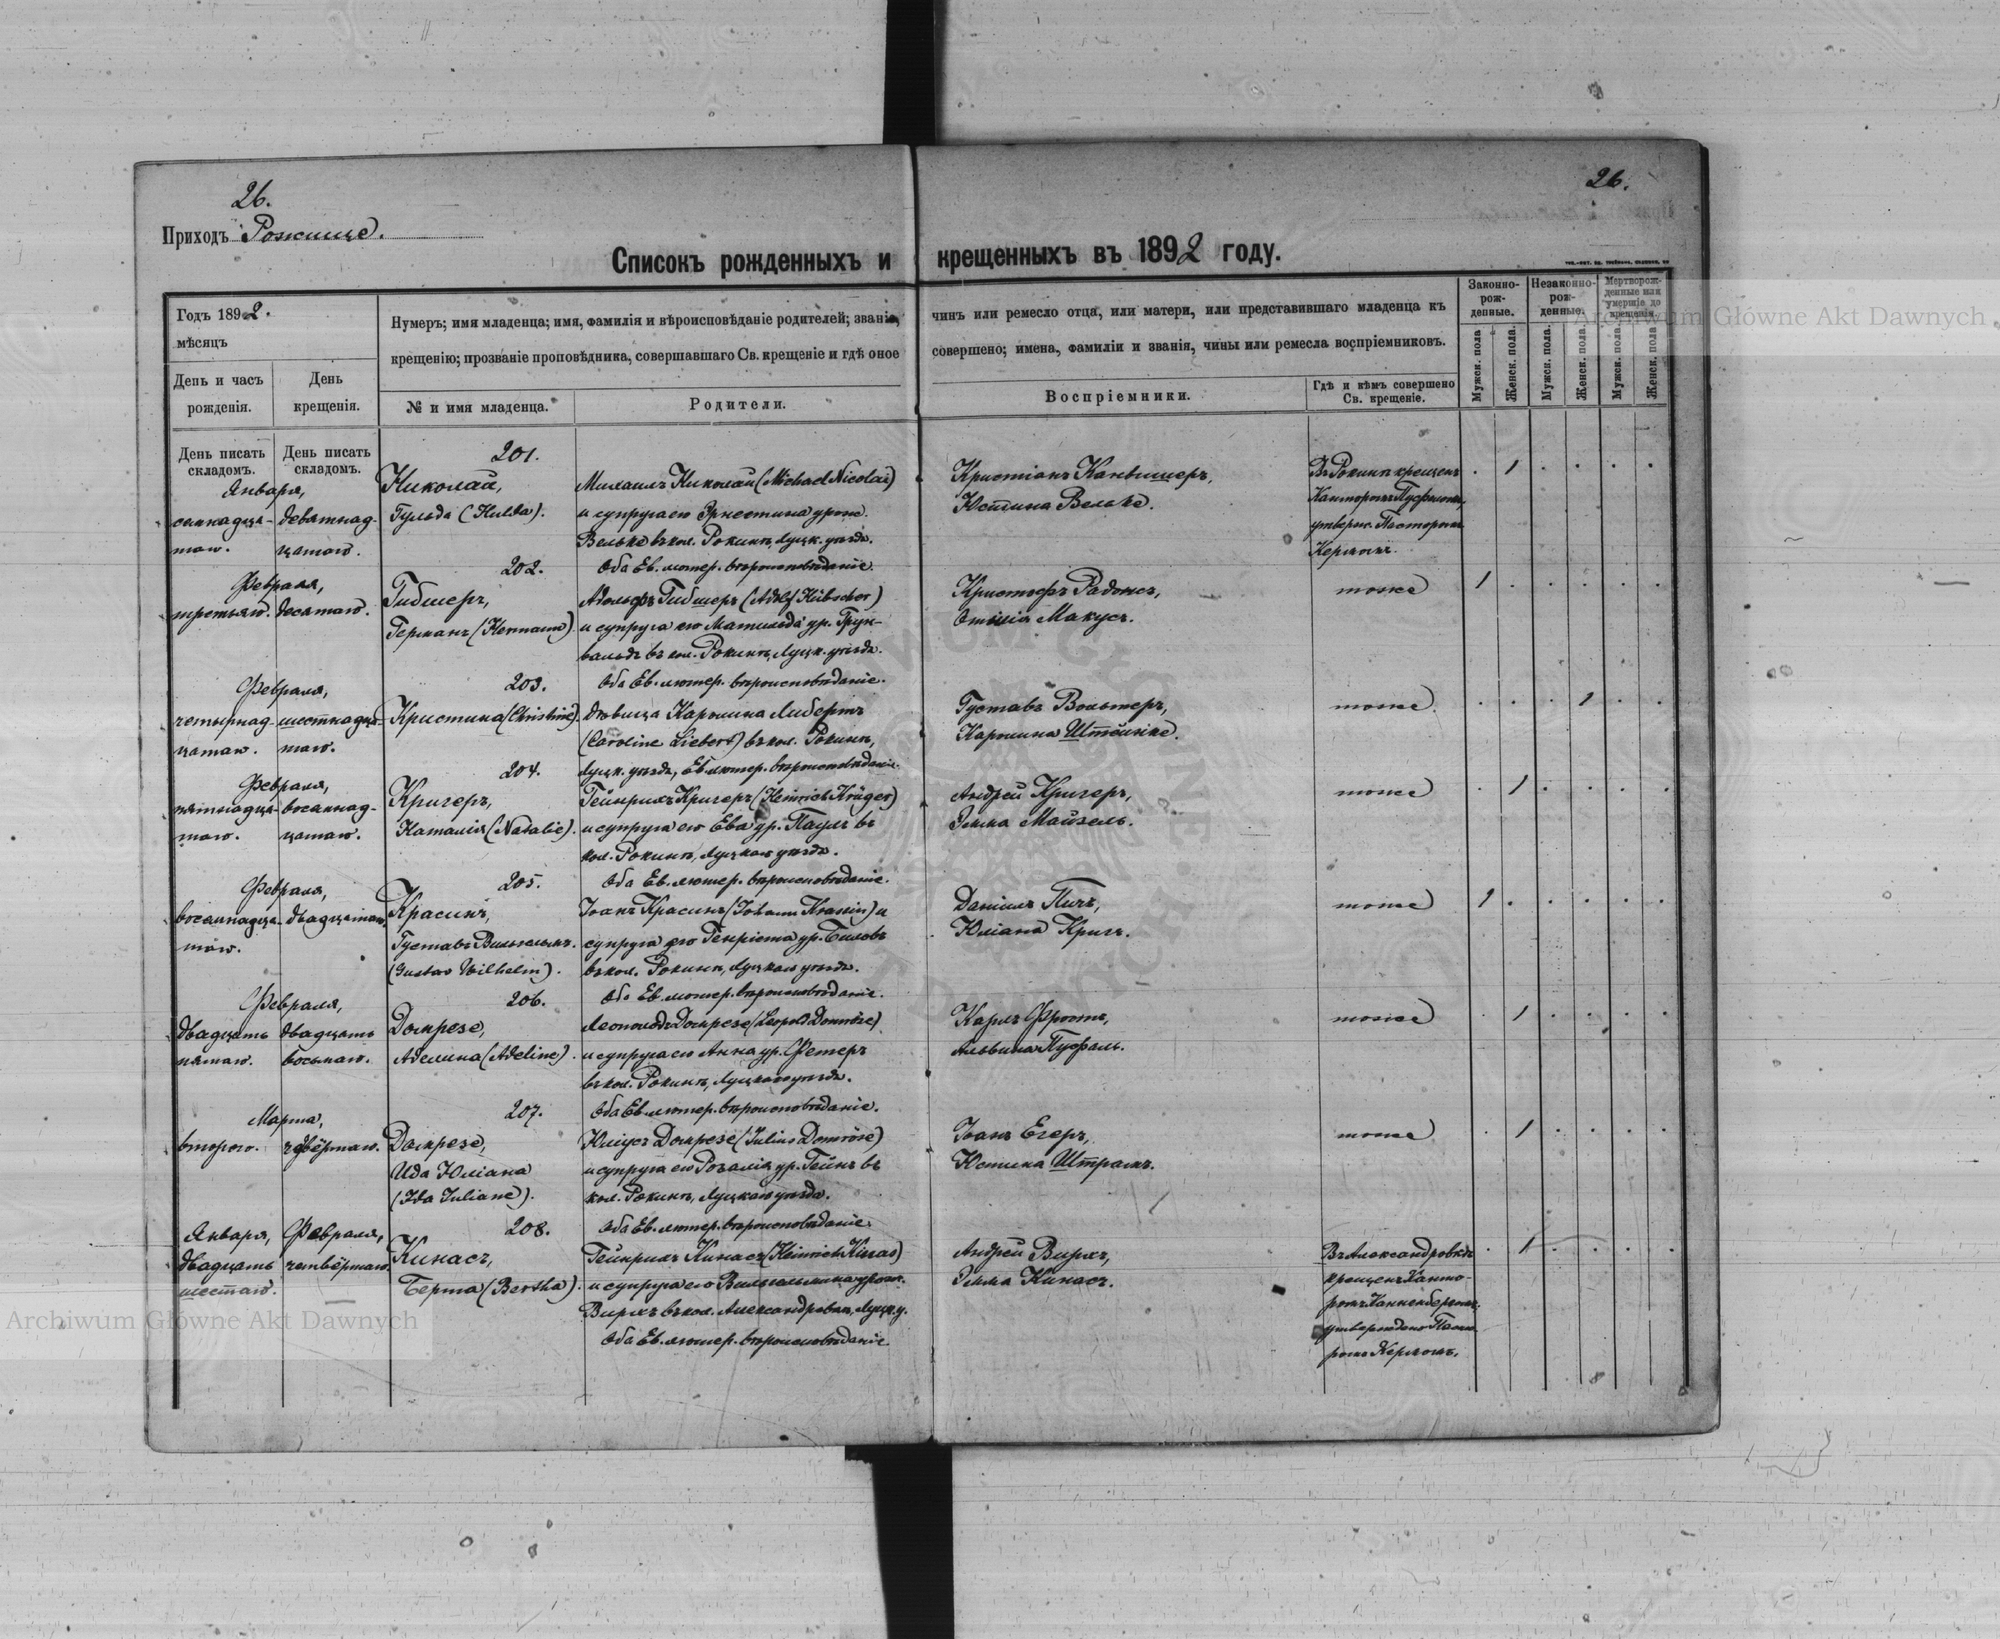 26.
26.
Приходъ Рожище.
Списокъ рожденныхъ и крещенныхъ въ 1892 году.
Годъ 1892.
мѣсяцъ
День и часъ рожденія.
День крещенія.
Нумеръ; имя младенца; имя, фамилія и вѣроисповѣданіе родителей; званіе, чинъ или ремесло отца, или матери, или представившаго младенца къ
крещенію; прозваніе проповѣдника, совершавшаго Св. крещеніе и гдѣ оное совершено; имена, фамиліи и званія, чины или ремесла воспріемниковъ.
№ и имя младенца.
Родители.
Воспріемники.
Гдѣ и кѣмъ совершено
Св. крещеніе.
Законно-
рож-
денные.
Незаконно-
рож-
денные.
Мертворож-
денные или
умершіе до
крещенія.
Мужск. пола
Женск. пола.
Мужск. пола.
Женск. пола.
Мужск. пола.
Женск. пола.
День писать
складомъ.
День писать
складомъ.
201.
Января,
семнадца-
таго.
девятнад-
цатаго.
Николай,
Гульда (Hulda).
Михаилъ Николай (Michael Nicolai)
и супруга его Эрнестина урож.
Вельке въ кол. Рокинѣ, Луцк. уѣзда.
Оба Ев. лютер. вѣроисповѣданіе.
Кристіанъ Каньшмеръ,
Юстина Вельке.
Въ Рокинѣ крещенъ
Канторомъ
утвержд. Пасторомъ
Кермомъ.
1
202.
Февраля,
третьяго.
десятаго.
Гибшеръ,
Германъ (Hermann).
Адольфъ Гибшеръ (Adolf Hübscher)
и супруга его Матильда ур. Грун-
вальдъ въ кол. Рокинѣ, Луцк. уѣзда.
Оба Ев. лютер. вѣроисповѣданіе.
Кристофъ Радонсъ,
Отилія Макусъ.
тоже
1
203.
Февраля,
четырнад-
цатаго.
шестнадца-
таго.
Кристина (Christine).
дѣвица Каролина Либертъ
(Caroline Liebert) въ кол. Рокинѣ,
Луцк. уѣзда, Ев. лютер. вѣроисповѣданіе.
Густавъ Вольтеръ,
Каролина Штейнке.
тоже
1
204.
Февраля,
пятнадца-
таго.
восемнад-
цатаго.
Кригеръ,
Наталія (Natalie).
Гейнрихъ Кригеръ (Heinrich Krüger)
и супруга его Ева ур. Пауль въ
кол. Рокинѣ, Луцкаго уѣзда.
Оба Ев. лютер. вѣроисповѣданіе.
Андрей Кригеръ,
Эмма Майзель.
тоже
1
205.
Февраля,
восемнадца-
таго.
двадцатаго.
Красинъ,
Густавъ Вильгельмъ.
(Gustav Wilhelm).
Іоанъ Красинъ (Johann Krassin) и
супруга его Генріета ур. Биловъ
въ кол. Рокинѣ, Луцкаго уѣзда.
Оба Ев. лютер. вѣроисповѣданіе.
Даніилъ Пичъ,
Юліана Кригъ.
тоже
1
206.
Февраля,
двадцать
пятаго.
двадцать
восьмаго.
Домрезе,
Аделина (Adeline).
Леопольдъ Домрезе (Leopold Domröse)
и супруга его Анна ур. Фетеръ
въ кол. Рокинѣ, Луцкаго уѣзда.
Оба Ев. лютер. вѣроисповѣданіе.
Карлъ Фростъ,
Альвина Пуфаль.
тоже
1
207.
Марта,
втораго.
четвёртаго.
Домрезе,
Ида Юліана
(Ida Juliane).
Юліусъ Домрезе (Julius Domröse)
и супруга его Розалія ур. Гейнъ въ
кол. Рокинѣ, Луцкаго уѣзда.
Оба Ев. лютер. вѣроисповѣданіе.
Іоанъ Егеръ,
Юстина Штрамъ.
тоже
1
208.
Января,
двадцать
шестаго.
Февраля,
четвёртаго.
Кинасъ,
Берта (Bertha).
Гейнрихъ Кинасъ (Heinrich Kinas)
и супруга его Вильгельмина урож.
Вирхъ въ кол. Александровкѣ, Луцк. у.
Оба Ев. лютер. вѣроисповѣданіе.
Андрей Вирхъ,
Эмма Кинасъ.
Въ Александровкѣ
крещенъ Канто-
ромъ
утверждено Пасто-
ромъ Кермомъ.
1
Archiwum Główne Akt Dawnych
Archiwum Główne Akt Dawnych